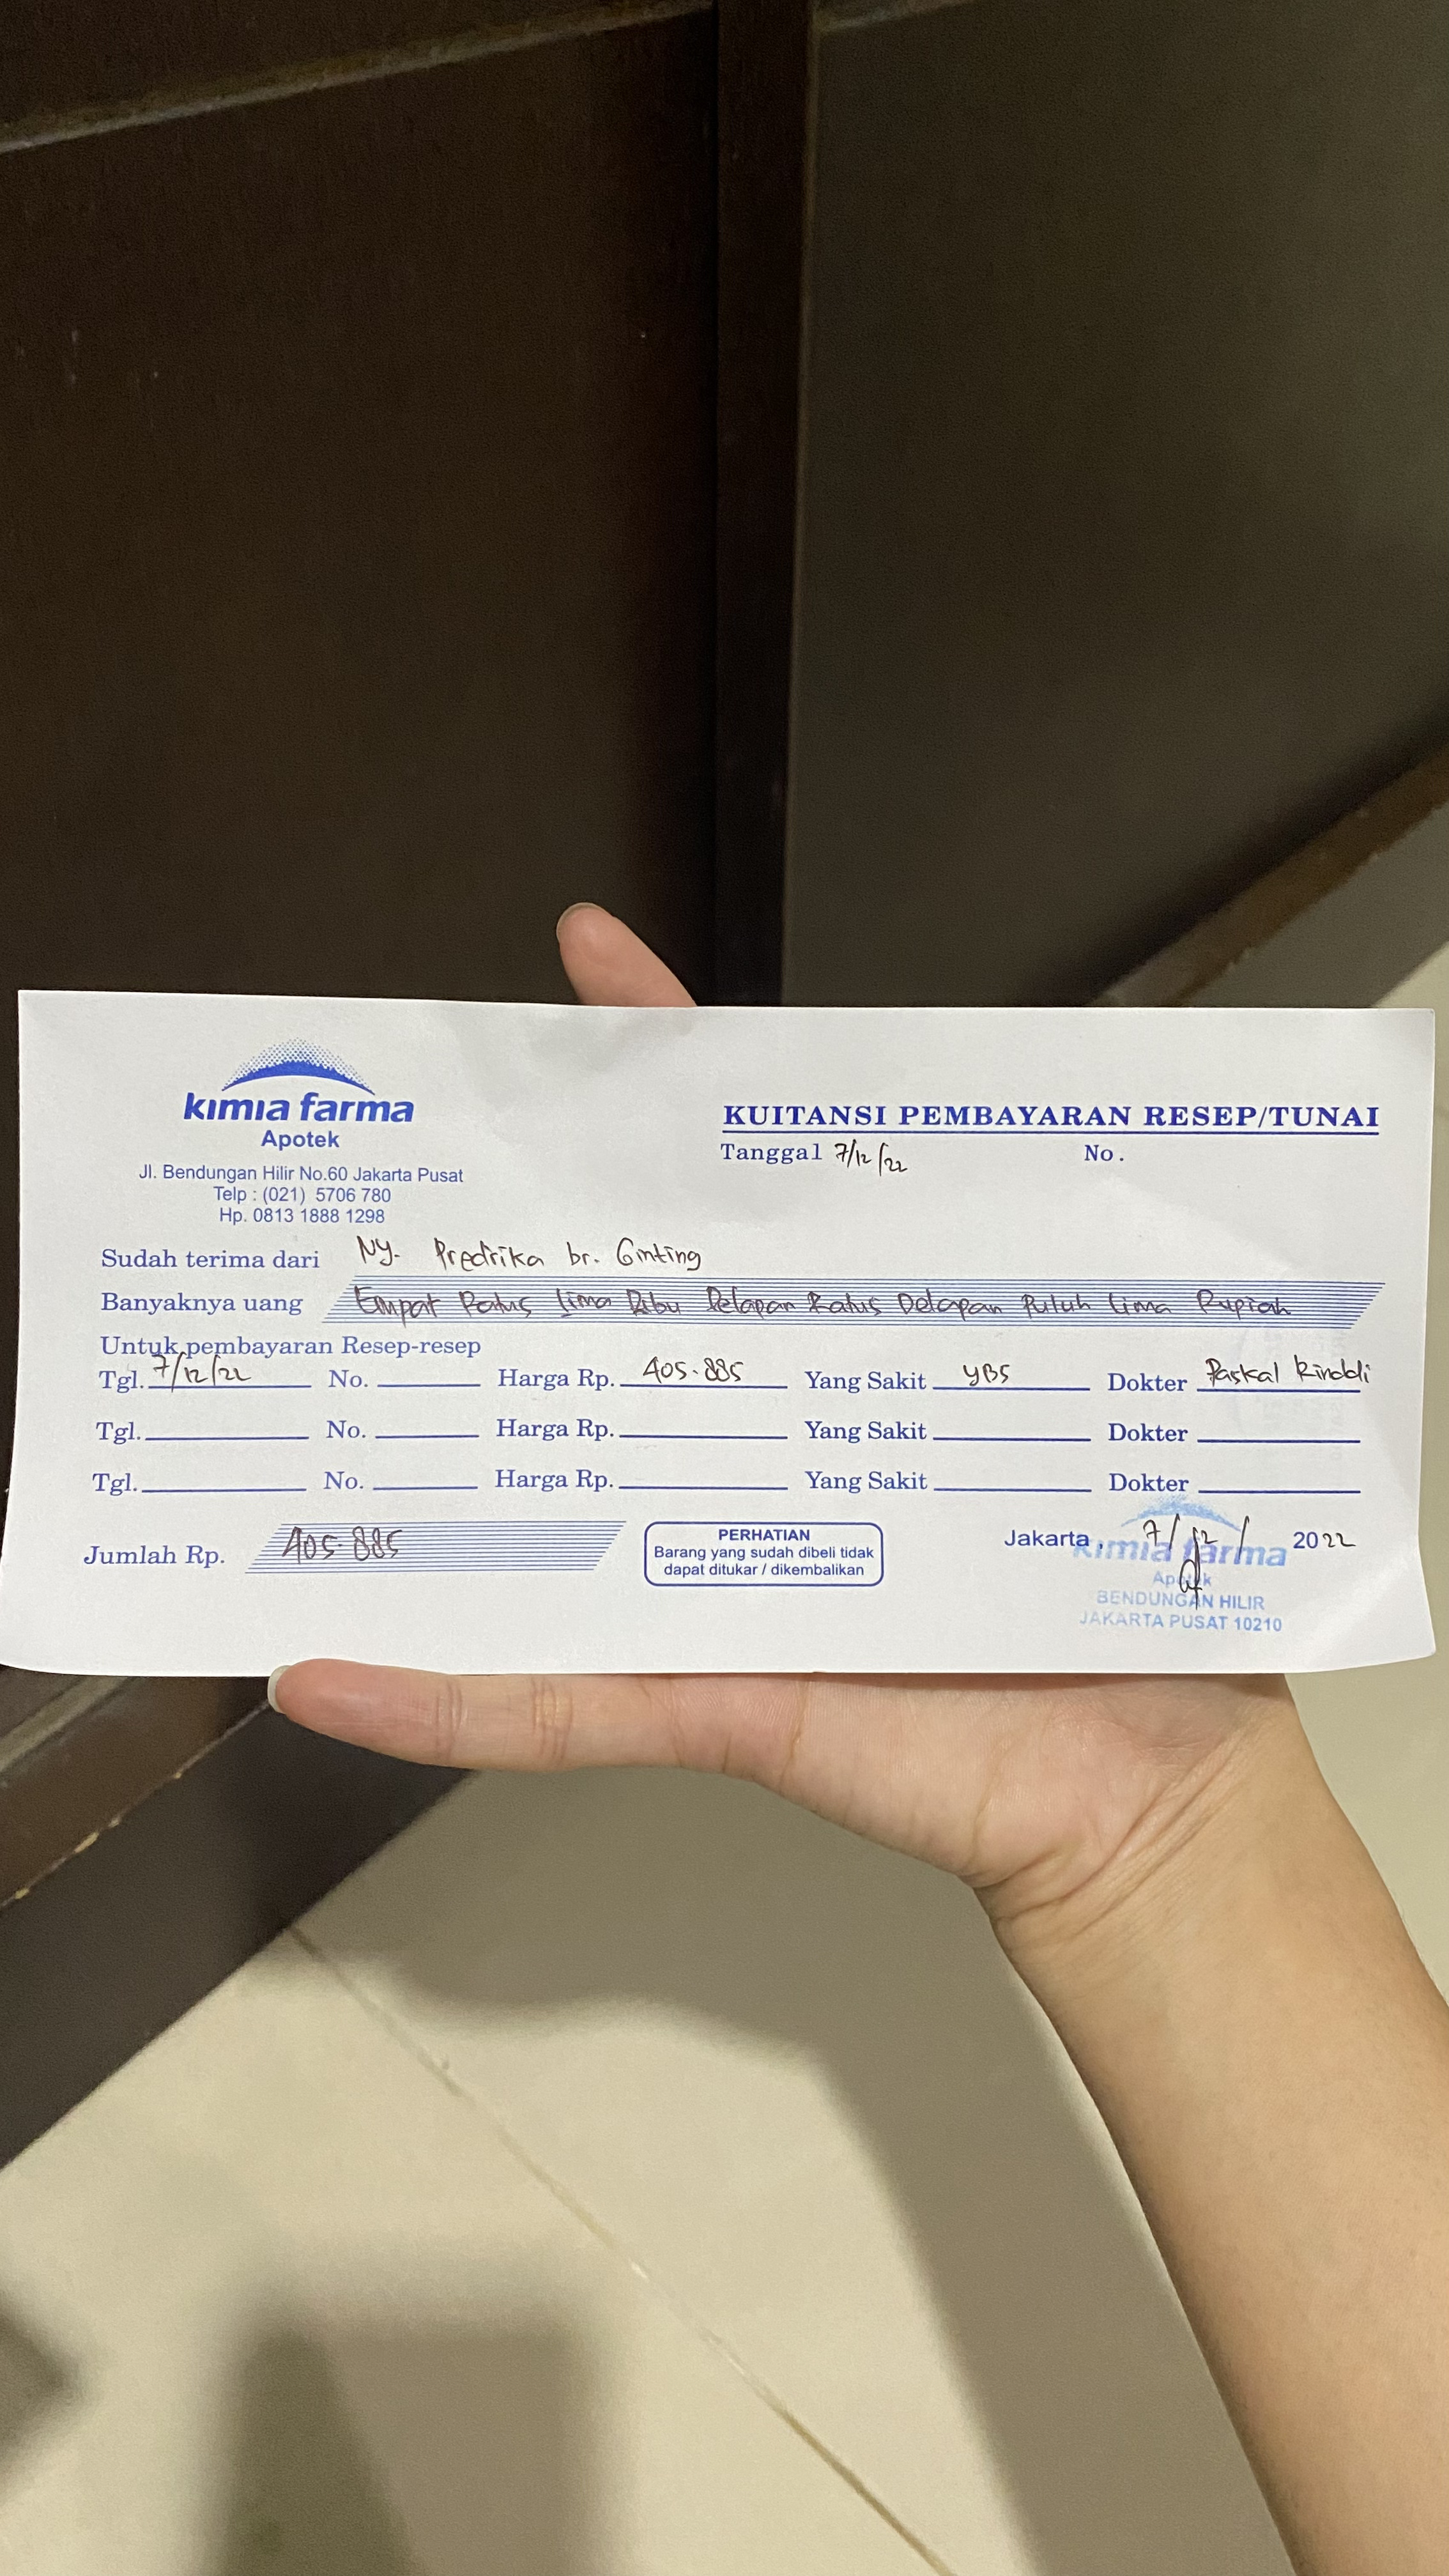 kimia farma
Apotek
Jl. Bendungan Hilir No.60 Jakarta Pusat
Telp : (021) 5706 780
Hp. 0813 1888 1298
KUITANSI PEMBAYARAN RESEP/TUNAI
Tanggal 7/12/22 No.
Sudah terima dari Ny. Predrika br. Ginting
Banyaknya uang Empat Ratus Lima Ribu Delapan Ratus Delapan Puluh Lima Rupiah
Untuk pembayaran Resep-resep
Tgl. 7/12/22 No. Harga Rp. 405.885 Yang Sakit YBS Dokter Paskal
Tgl. No. Harga Rp. Yang Sakit Dokter
Tgl. No. Harga Rp. Yang Sakit Dokter
Jumlah Rp. 405.885
PERHATIAN
Barang yang sudah dibeli tidak
dapat ditukar / dikembalikan
Jakarta, 7/12/2022
kimia farma
Apotek
BENDUNGAN HILIR
JAKARTA PUSAT 10210